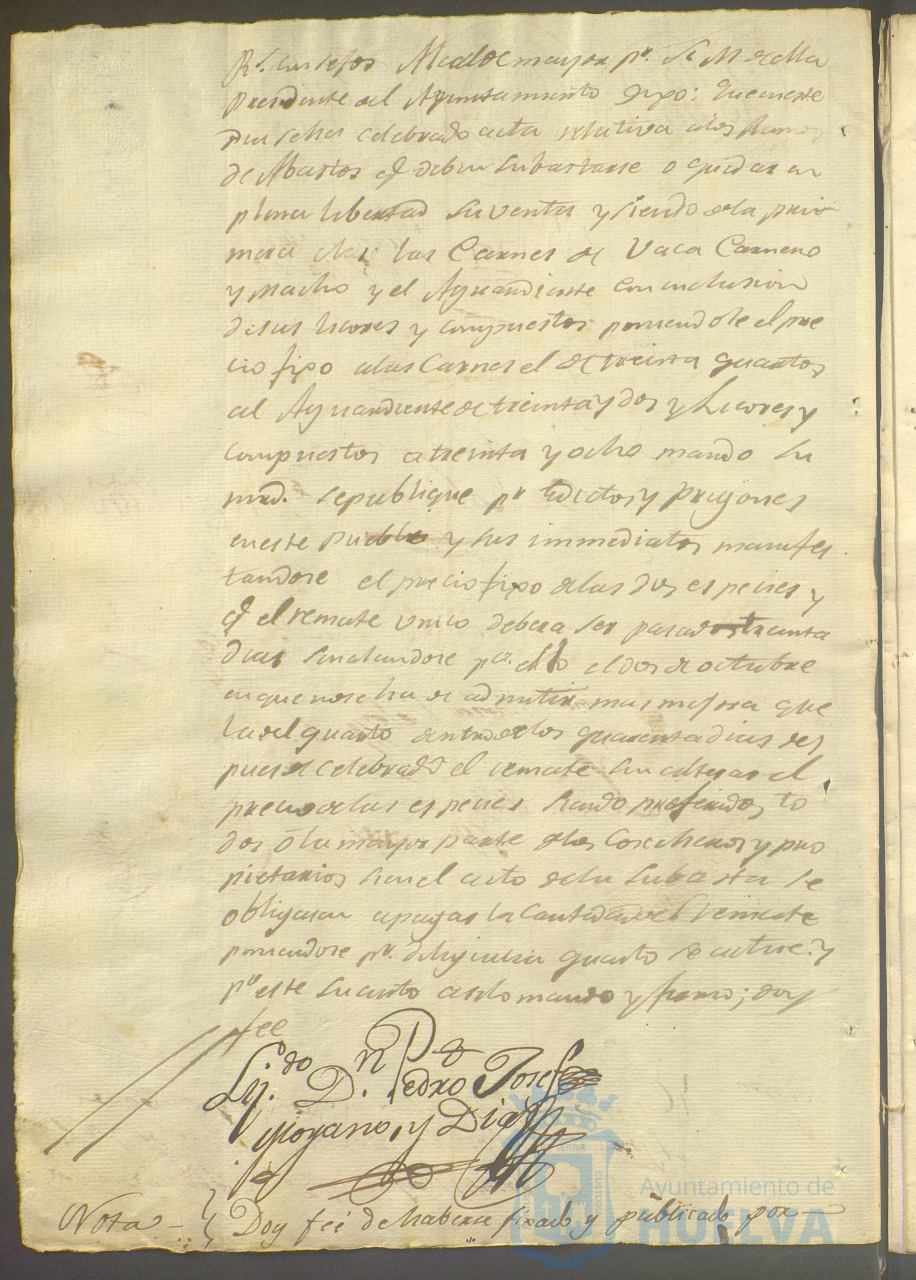 Rs. Consejos Alcalde mayor pr. S. M. de ella
Presidente del Ayuntamiento Dixo: que en este
dia se ha celebrado acta relativa a los Ramos
de Abastos q. deben subastarse o quedar en
plena libertad su venta y siendo de la pri
mera clas las Carnes de Vaca Carnero
y macho y el Aguardiente con inclusion
de sus licores y compuestos poniendole el pre
cio fixo a las Carnes el de treinta quartos
al Aguardiente de treinta y dos y Licores y
compuestos a treinta y ocho mando su
mrd. se publique pr Edictos y pregones
en este Pueblo y sus immediatos manifes
tandose el precio fixo de las dos especies y
q. el remate unico debera ser pasados treinta
dias señalandose pa. ello el dos de octubre
en que no se ha de admitir mas mejora que
la del quarto dentro de los quarenta dias des
pues de celebrado el remate sin alterar el
precio de las especies siendo preferidos to
dos ó la mayor parte de los Cosecheros y pro
pietarios si en el acto de la subasta se
obligasen a pagar la cantidad del remate
poniendose pr. diligencia quanto se actue. y
pr este su auto asi lo mando y firmo; doy
fee
Lizdo Dn. Pedro Josef
Moyano, y Diaz
Nota Doy feé de haberse fixado y publicado por
Ayuntamiento de
HUELVA